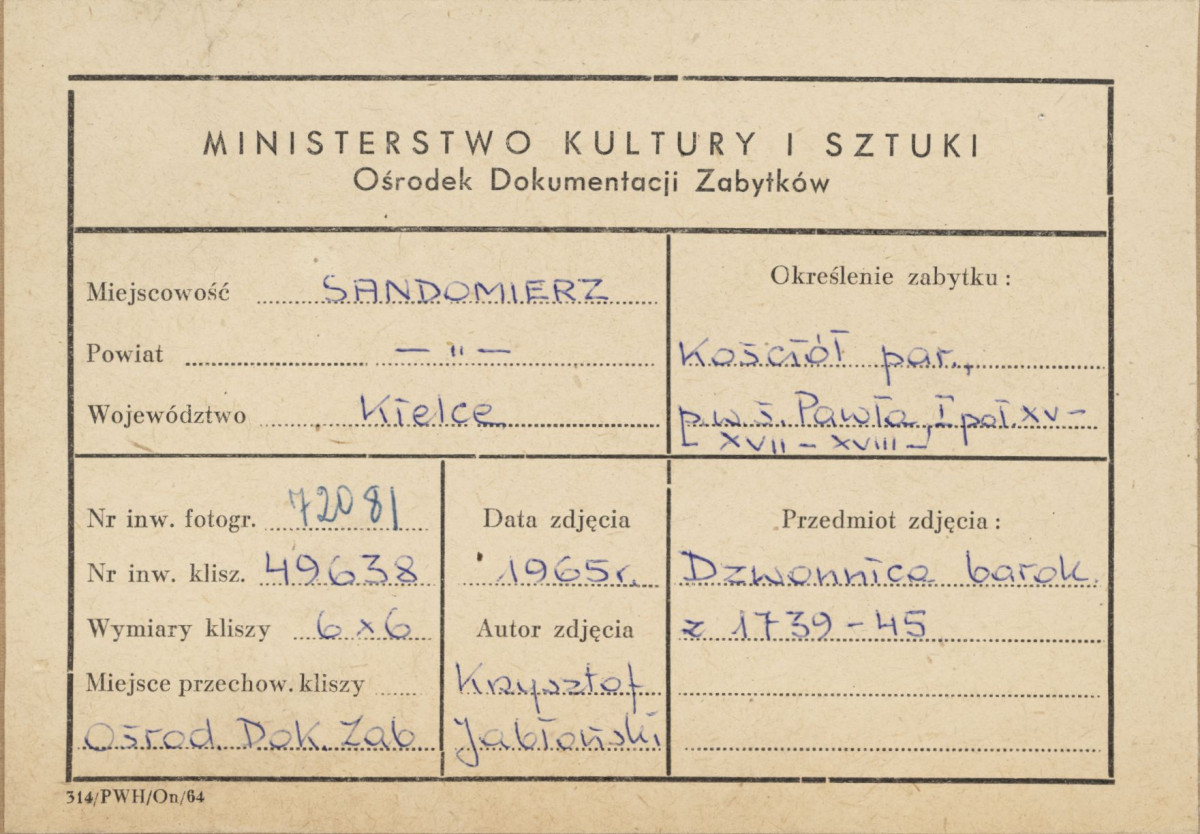 MINISTERSTWO KULTURY I SZTUKI
Ośrodek Dokumentacji Zabytków
Miejscowość SANDOMIERZ
Powiat — " —
Województwo Kielce
Określenie zabytku:
Kościół par.,
p.w. ś. Pawła, I poł. XV –
XVII – XVIII –
Nr inw. fotogr. 72081
Nr inw. klisz. 49638
Wymiary kliszy 6 x 6
Miejsce przechow. kliszy
Ośrod. Dok. Zab
Data zdjęcia
1965 r.
Autor zdjęcia
Krzysztof
Jabłoński
Przedmiot zdjęcia:
Dzwonnica barok.
z 1739 – 45
314/PWH/On/64